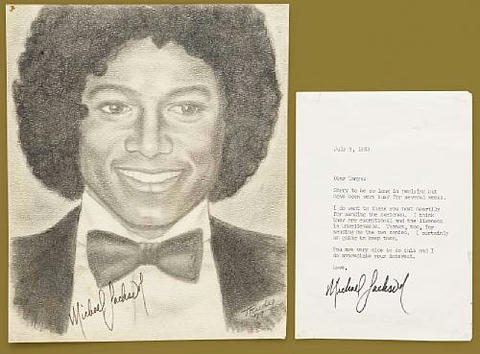 Michael Jackson
July 5, 1983
Sorry to be so long in replying but
have been very busy for several weeks.
I do want to thank you most heartily
for sending the sketches. I think
they are exceptional and the likeness
is unmistakable. Thanks, too, for
sending me the two copies. I certainly
am going to keep them.
You are very nice to do this and I
do appreciate your interest.
Love,
Michael Jackson